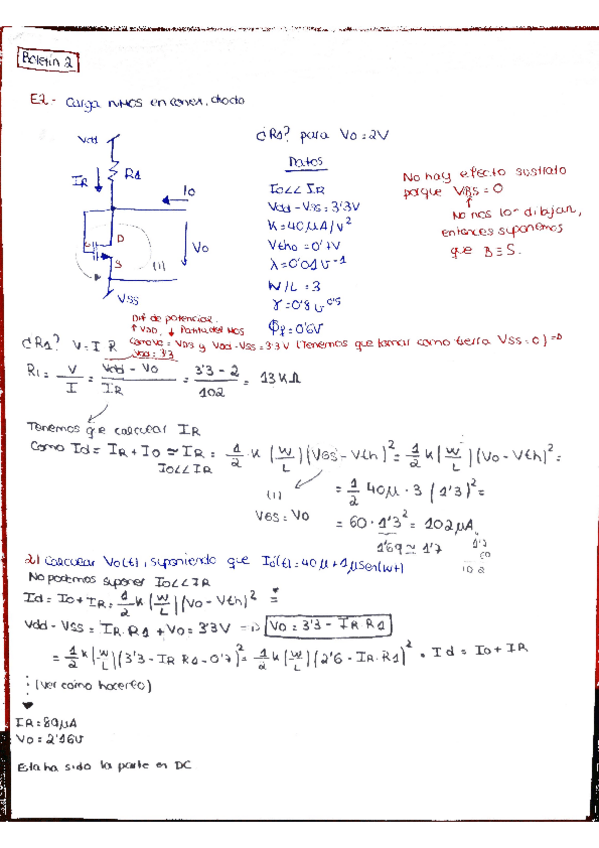 Boletín 2
E2 - Carga NMOS en conex. diodo
¿R1? para Vo = 2V
Datos
Io << IR
Vdd - Vss = 3'3V
K = 40μA/V²
Vtho = 0'7V
λ = 0'01V⁻¹
W/L = 3
γ = 0'8 V^0'5
Φf = 0'6V
No hay efecto sustrato
porque VBS = 0
No nos lo dibujan,
entonces suponemos
que B ≡ S.
Vdd
IR
R1
Io
D
S
(1)
Vo
VSS
Dif de potencial.
¿R1? V = I·R
Como Vo = VDS y Vdd - VSS = 3'3V (Tenemos que tomar como tierra VSS = 0) =>
Vdd = 3'3
R1 = V/I = (Vdd - Vo)/IR = (3'3 - 2)/102 = 13 KΩ
Tenemos que calcular IR
Como Id = IR + Io ≃ IR = 1/2 K (W/L)(VGS - Vth)² = 1/2 K (W/L)(Vo - Vth)² =
Io << IR
(1)
VGS = Vo
= 1/2 40μ · 3 (1'3)² =
= 60 · 1'3² = 102μA
1'69 ≃ 1'7
1'7
60
102
2) Calcular Vo(t), suponiendo que Io(t) = 40μ + 1μSen(wt)
No podemos suponer Io << IR
Id = Io + IR = 1/2 K (W/L)(Vo - Vth)² =
Vdd - VSS = IR · R1 + Vo = 3'3V => Vo = 3'3 - IR R1
= 1/2 K (W/L)(3'3 - IR R1 - 0'7)² = 1/2 K (W/L)(2'6 - IR · R1)² = Id = Io + IR
(ver como hacerlo)
IR = 89μA
Vo = 2'16V
Esta ha sido la parte en DC